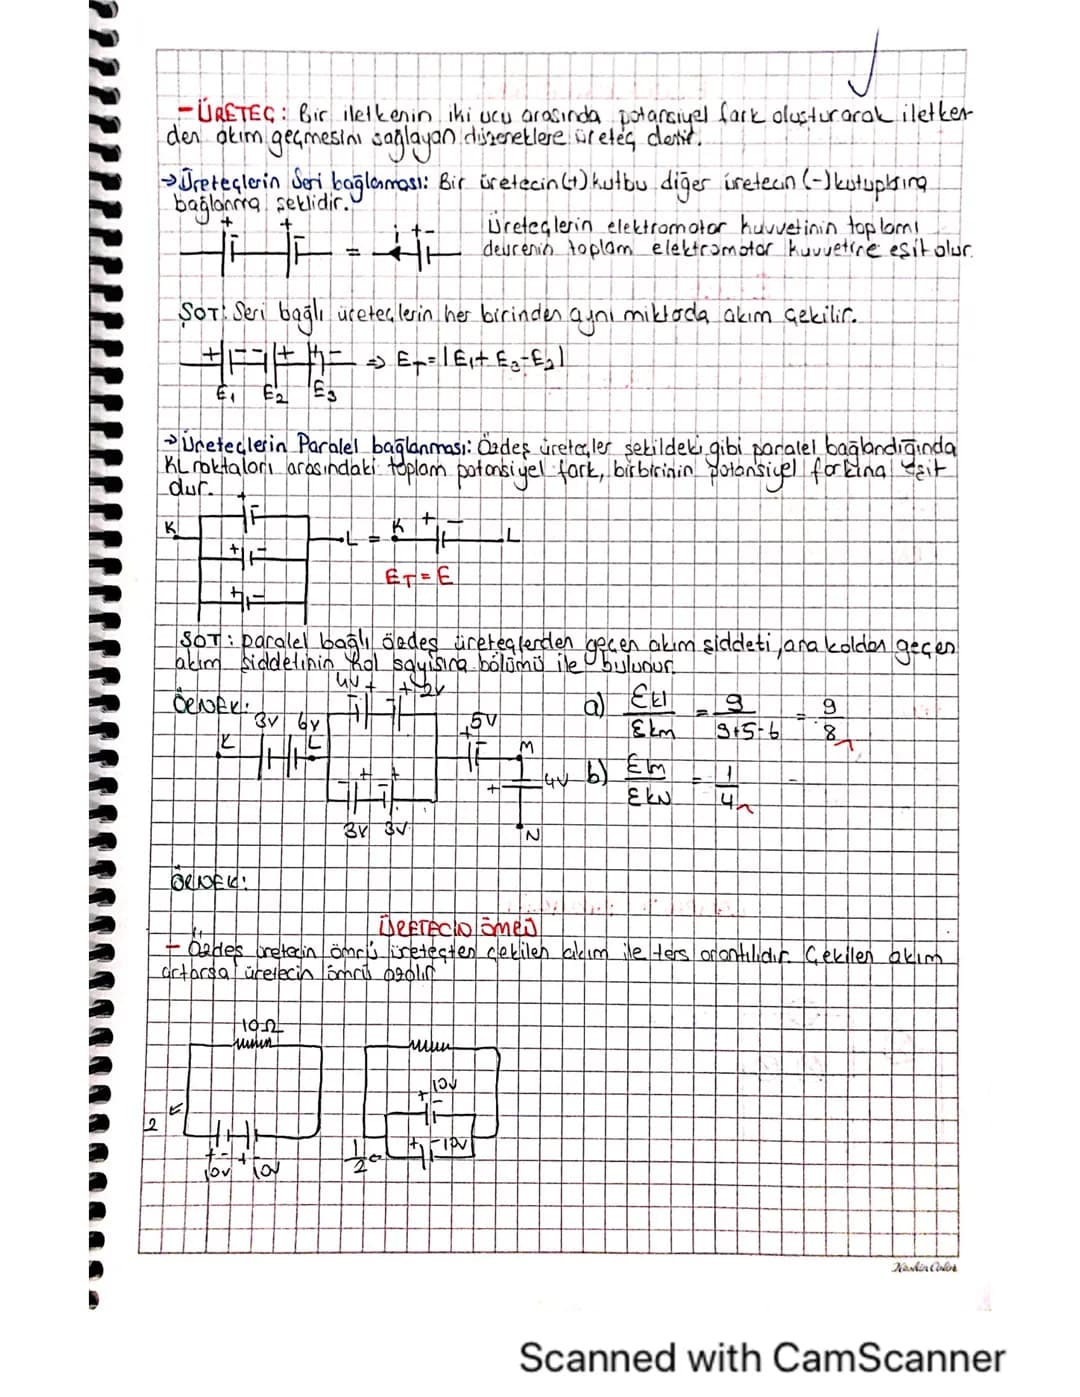 -ÜRETEÇ: Bir iletkenin iki ucu arasında potansiyel fark oluşturarak iletken
den akım geçmesini sağlayan düzeneklere üreteç denir.
→Üreteçlerin Seri bağlanması: Bir üretecin (+) kutbu diğer üretecin (-) kutuplarına
bağlanma şeklidir.
Üreteçlerin elektromotor kuvvetinin toplamı
devrenin toplam elektromotor kuvvetine eşit olur.
+ + = i + -
ŞOT: Seri bağlı üreteçlerin her birinden aynı miktada akım çekilir.
+ - - + + - ⇒ ET=|E1+E3-E2|
E1 E2 E3
→Üreteçlerin Paralel bağlanması: Özdeş üreteçler şekildeki gibi paralel bağlandığında
KL noktaları arasındaki toplam potansiyel fark, birbirinin potansiyel farkına eşit
dur.
K + - L = K + - L
+ -
+ -
ET=E
ŞOT: paralel bağlı özdeş üreteçlerden geçen akım şiddeti, ana koldan geçen
akım şiddetinin kol sayısına bölümü ile bulunur.
ÖRNEK:
4V + + 2V
3V 6V
K L
+ 5V
M
+ 4V
N
+ +
3V 3V
a) Ekl / Ekm = 9 / 9+5-6 = 9/8
b) Elm / EkN = 1/4
ÖRNEK:
ÜRETECİN ÖMRÜ
- Özdeş üretecin ömrü üreteçten çekilen akım ile ters orantılıdır. Çekilen akım
artarsa üretecin ömrü azalır
10Ω
2
+ - + -
10V 10V
10V
+ -
+ - 10V
1/2
Scanned with CamScanner